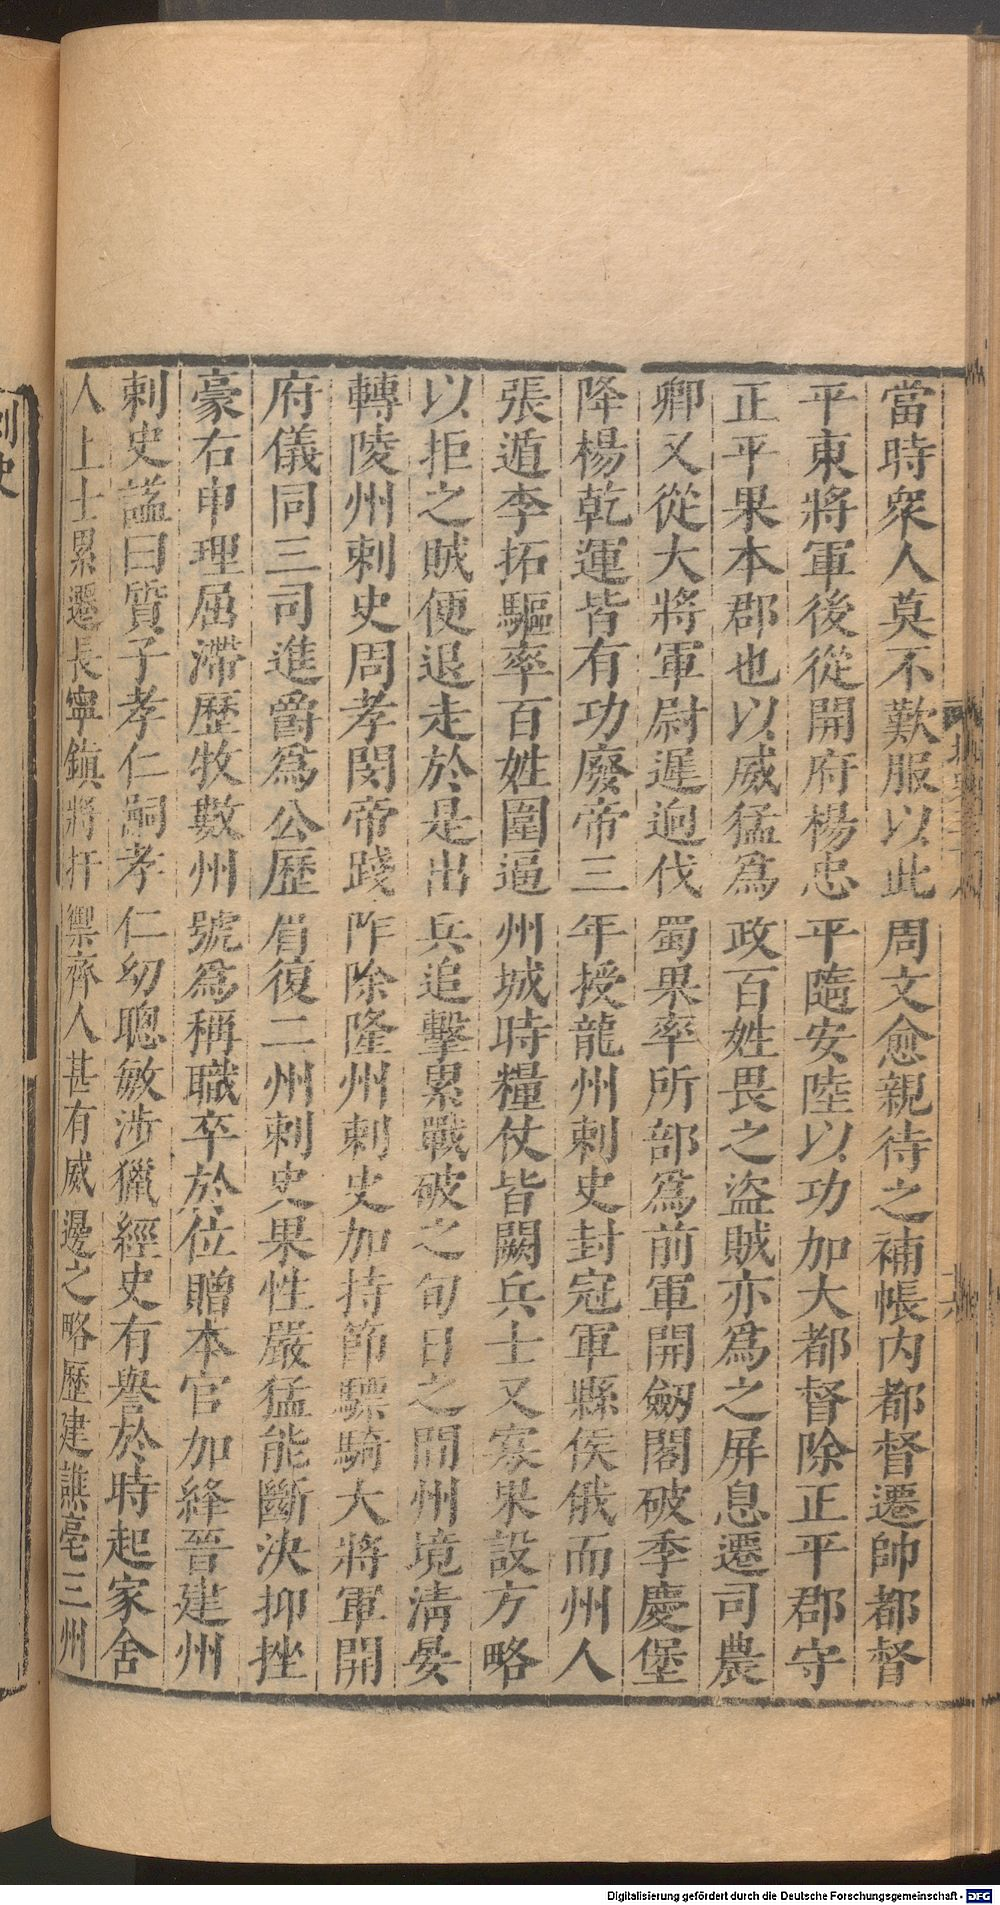 當時衆人莫不歎服以此周文愈親待之補帳内都督遷帥都督
平東將軍後從開府楊忠平隨安陸以功加大都督除正平郡守
正平果本郡也以威猛為政百姓畏之盗賊亦爲之屏息遷司農
卿又從大將軍尉遲迥伐蜀果率所部爲前軍開劒閣破季慶堡
降楊乾運皆有功廢帝三年授龍州刺史封冠軍縣侯俄而州人
張遁李拓驅率百姓圍逼州城時糧仗皆闕兵士又寡果設方略
以拒之賊便退走於是出兵追擊累戰破之旬日之間州境淸晏
轉陵州刺史周孝閔帝踐阼除隆州刺史加持節驃騎大將軍開
府儀同三司進爵爲公歷眉復二州刺史果性嚴猛能斷決抑挫
豪右申理屈滯歷牧數州號爲稱職卒於位贈本官加絳晉建州
刺史謚曰質子孝仁嗣孝仁幼聰敏涉獵經史有譽於時起家舍
人上士累遷長寧鎮將扞禦齊人甚有威邊之略歷建譙亳三州
刺史
Digitalisierung gefördert durch die Deutsche Forschungsgemeinschaft - DFG